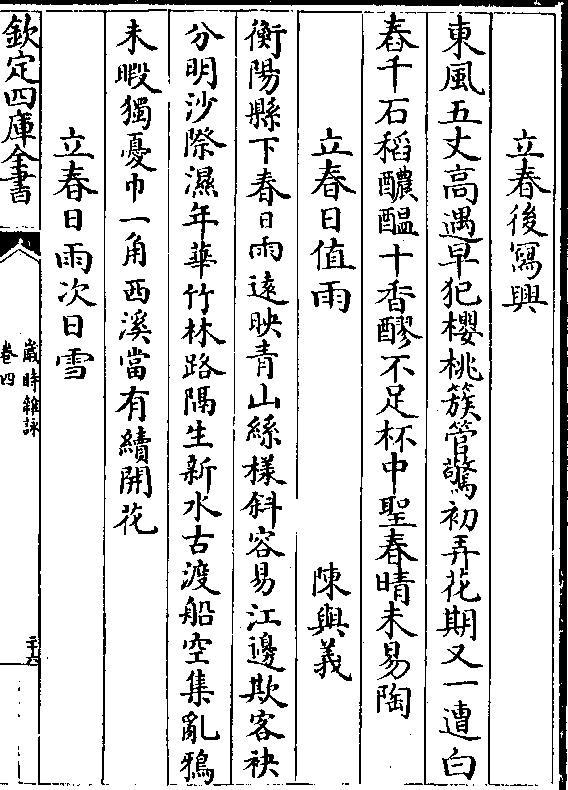 立春後寫興
東風五丈高遇早犯櫻桃簇管驚初弄花期又一遭白
舂千石稻醲醖十香醪不足杯中聖春晴未易陶
立春日值雨 陳與義
衡陽縣下春日雨遠映青山絲樣斜容易江邊欺客袂
分明沙際濕年華竹林路隔生新水古渡船空集亂鴉
未暇獨憂巾一角西溪當有續開花
立春日雨次日雪
欽定四庫全書
歲時雜詠
卷四
二十六